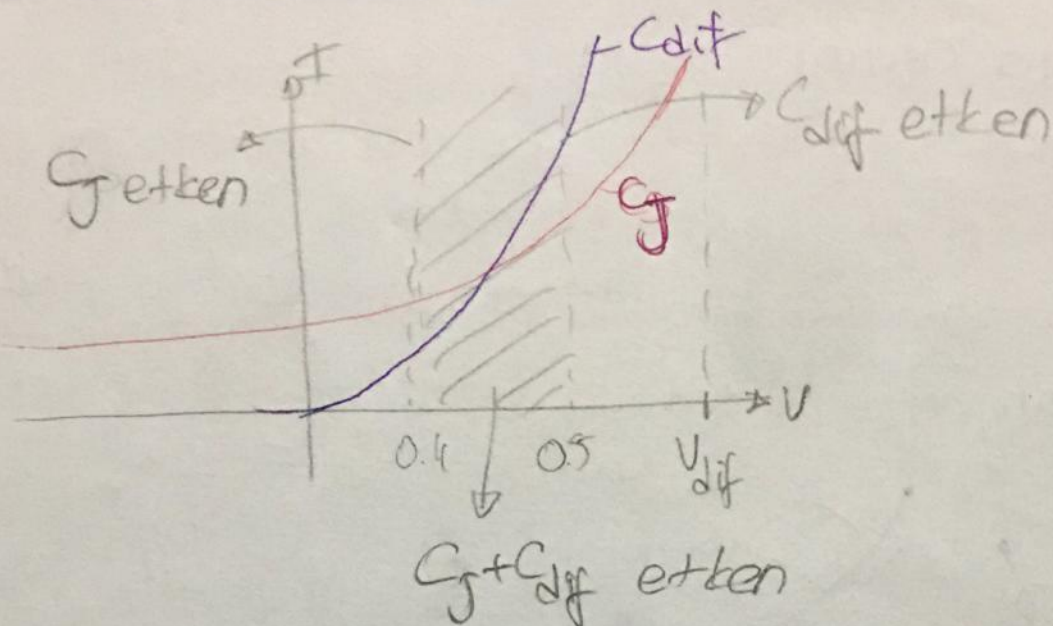 Cdif
I
Cdif etken
CJ etken
CJ
V
0.4
0.5
Vdif
CJ+Cdif etken